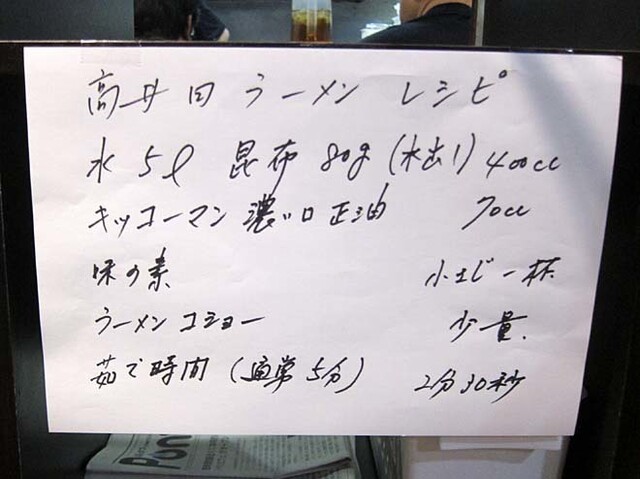 高井田ラーメン レシピ
水 5ℓ 昆布 80g (水出し) 400cc
キッコーマン 濃い口 正油 70cc
味の素 小さじ一杯
ラーメンコショー 少量.
茹で時間 (通常5分) 2分30秒
Pon